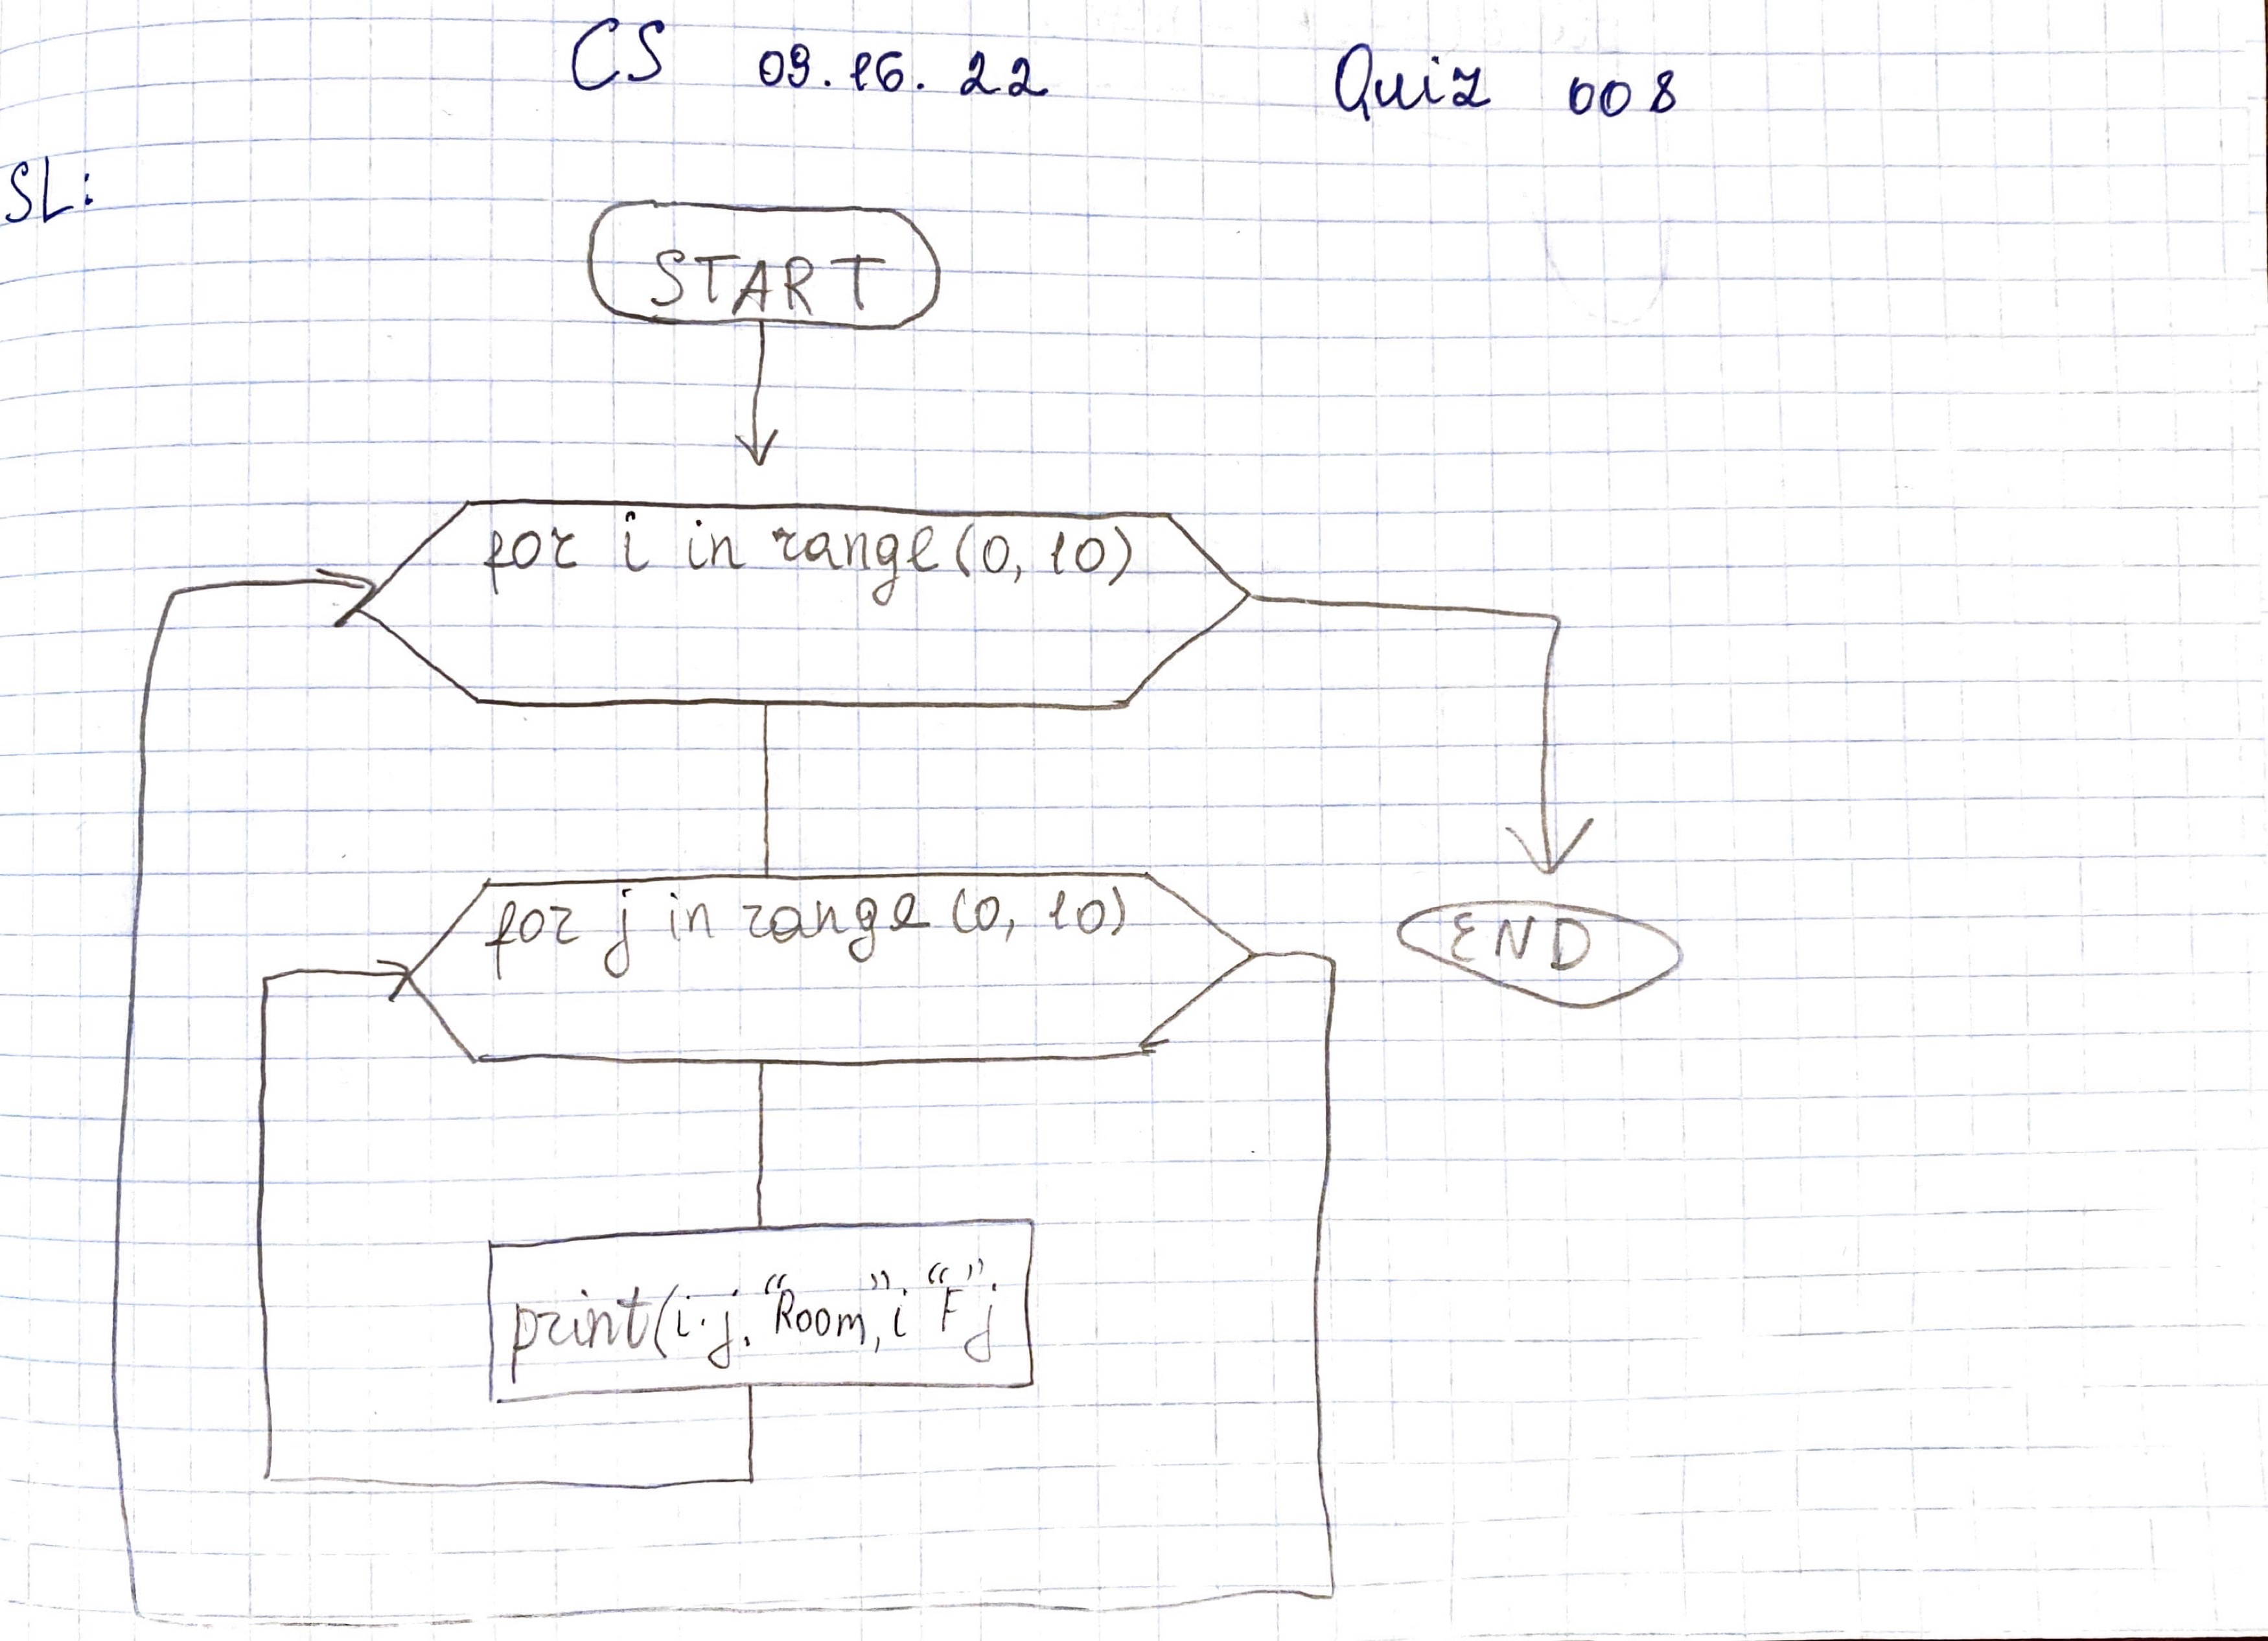 CS 09.16.22 Quiz 008
SL:
START
for i in range(0, 10)
for j in range(0, 10)
END
print(i·j, "Room", i "F" j